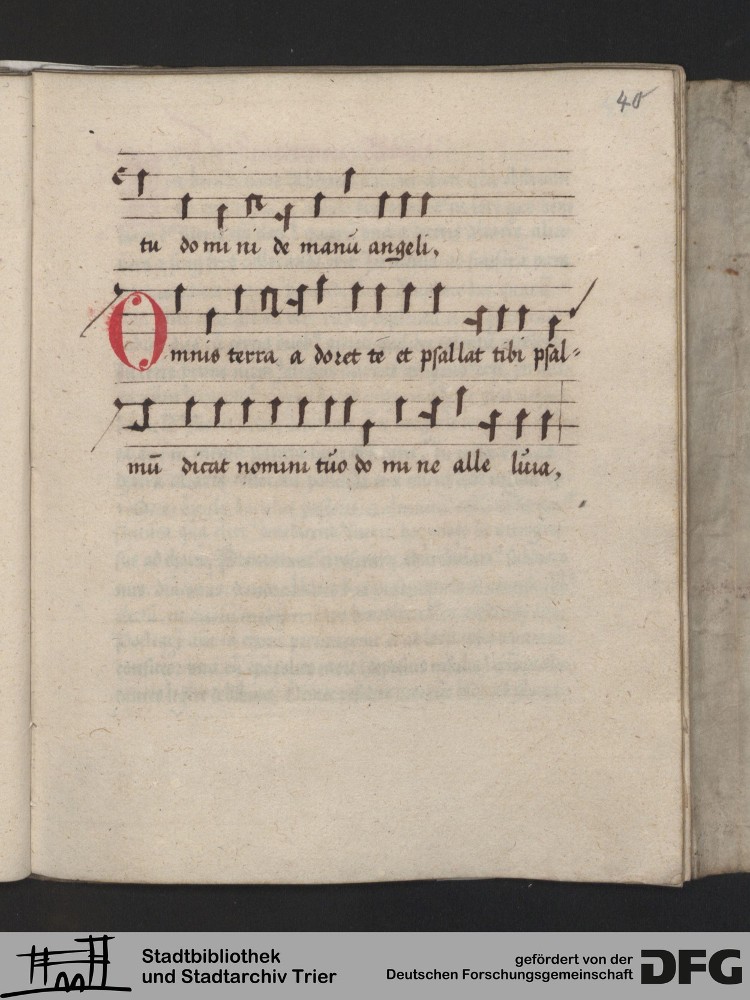 40
tu do mi ni de manū angeli,
Omnis terra a doret te et psallat tibi psal-
mū dicat nomini tuo do mi ne alle luia,
Stadtbibliothek
und Stadtarchiv Trier
gefördert von der
Deutschen Forschungsgemeinschaft
DFG